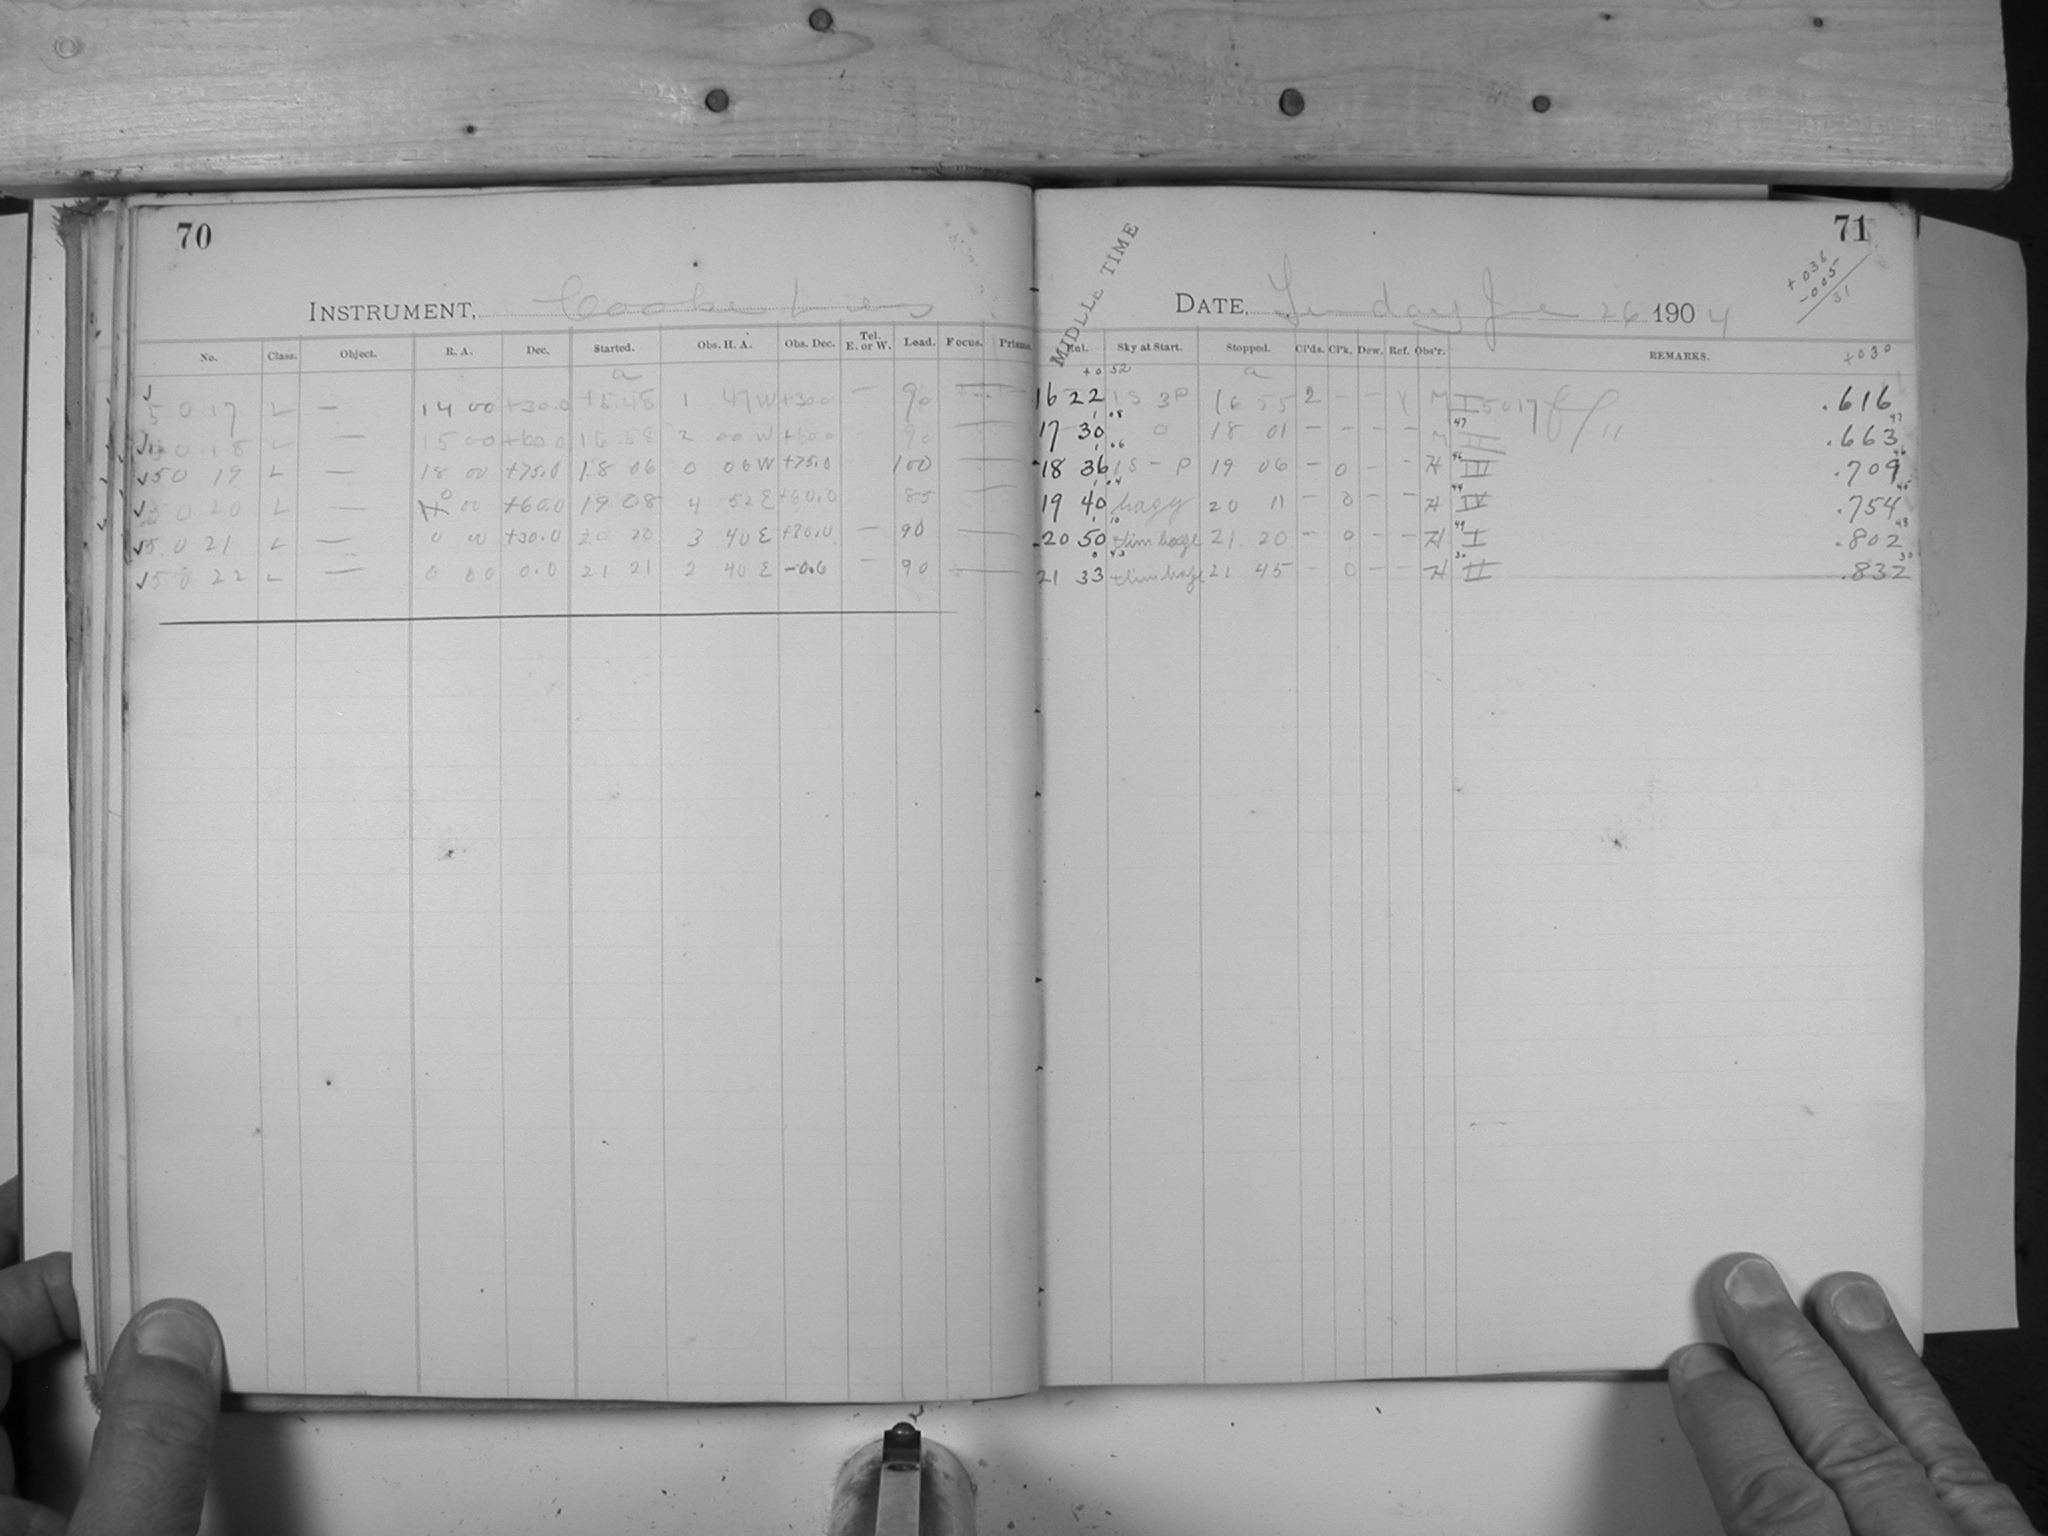 70
INSTRUMENT, Cooke Lens
No. Class. Object. R. A. Dec. Started. Obs. H. A. Obs. Dec. Tel. E. or W. Lead. Focus. Prisms.
a
✓ 5017 L — 14 00 +30.0 15 48 1 47 W +30.0 — 90 —
✓ 5018 L — 15 00 +60.0 16 58 2 00 W +60.0 90 —
✓ 5019 L — 18 00 +75.0 18 06 0 06 W +75.0 100 —
✓ 5020 L — 0 00 +60.0 19 08 4 52 E +60.0 85 —
✓ 5021 L — 0 00 +30.0 20 20 3 40 E +30.0 — 90 —
✓ 5022 L — 0 00 0.0 21 21 2 40 E -0.6 — 90 —
71
MIDDLE TIME
DATE, Sunday June 26 1904
+036
-005
31
Sky at Start. Stopped. Cl'ds. Cl'k. Dew. Ref. Obs'r. REMARKS.
+030
+0 52 a
16 22 1S 3P 16 55 2 - - V M I 5017 .616
1 08 47 47
17 30 0 18 01 - - - - M II .663
1 06 46 46
18 36 1S - P 19 06 - 0 - - H III .709
1 04 44 45
19 40 hazy 20 11 - 0 - - H IV .754
1 10 49 48
20 50 thin haze 21 20 - 0 - - H I .802
0 43 30 30
21 33 thin haze 21 45 - 0 - - H II .832